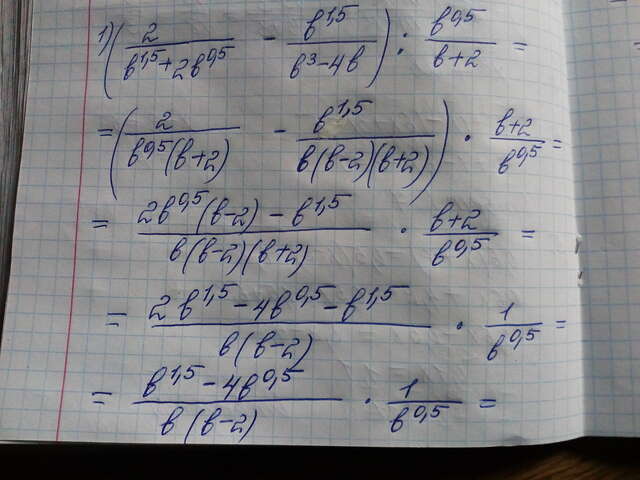 1) (2/(b^1,5 + 2b^0,5) − b^1,5/(b^3 − 4b)) : b^0,5/(b+2) =
= (2/(b^0,5(b+2)) − b^1,5/(b(b−2)(b+2))) · (b+2)/b^0,5 =
= (2b^0,5(b−2) − b^1,5)/(b(b−2)(b+2)) · (b+2)/b^0,5 =
= (2b^1,5 − 4b^0,5 − b^1,5)/(b(b−2)) · 1/b^0,5 =
= (b^1,5 − 4b^0,5)/(b(b−2)) · 1/b^0,5 =